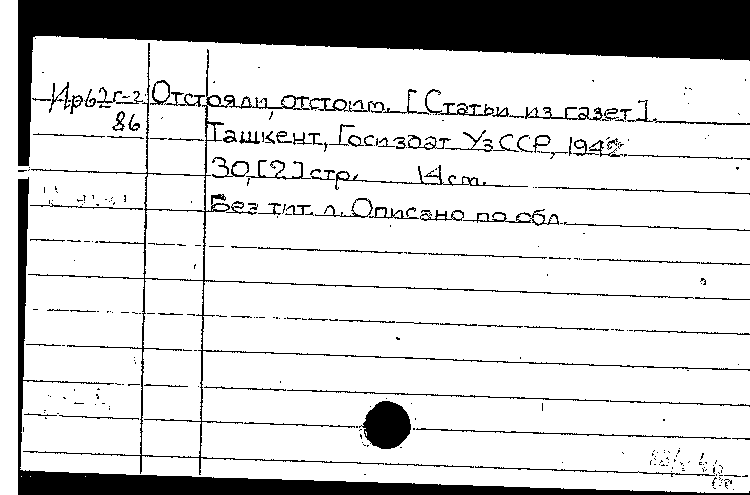 Ир62г-2 Отстояли, отстоим. [Статьи из газет].
86 Ташкент, Госиздат УзССР, 1942
30,[2]стр. 14 cm.
Без тит. л. Описано по обл.